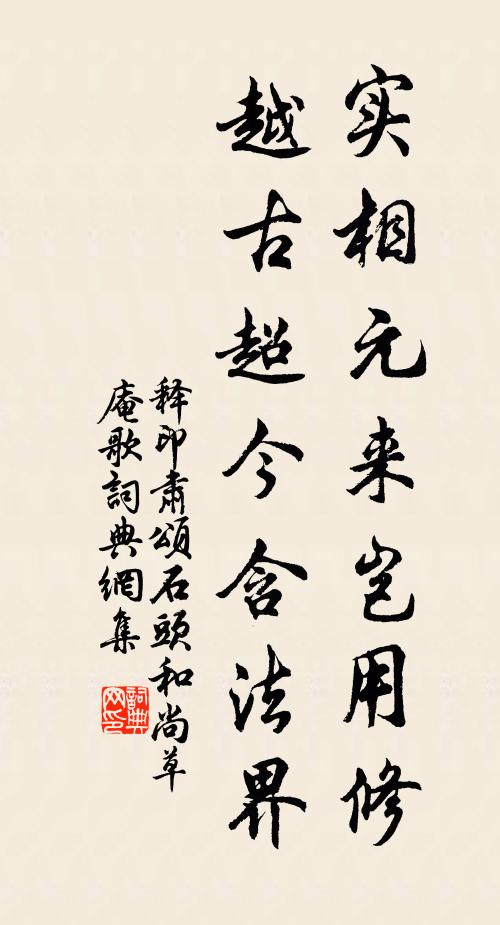 实相元来岂用修
越古超今含法界
释印肃颂石頭和尚草
庵歌詞典網集
詞典
网印